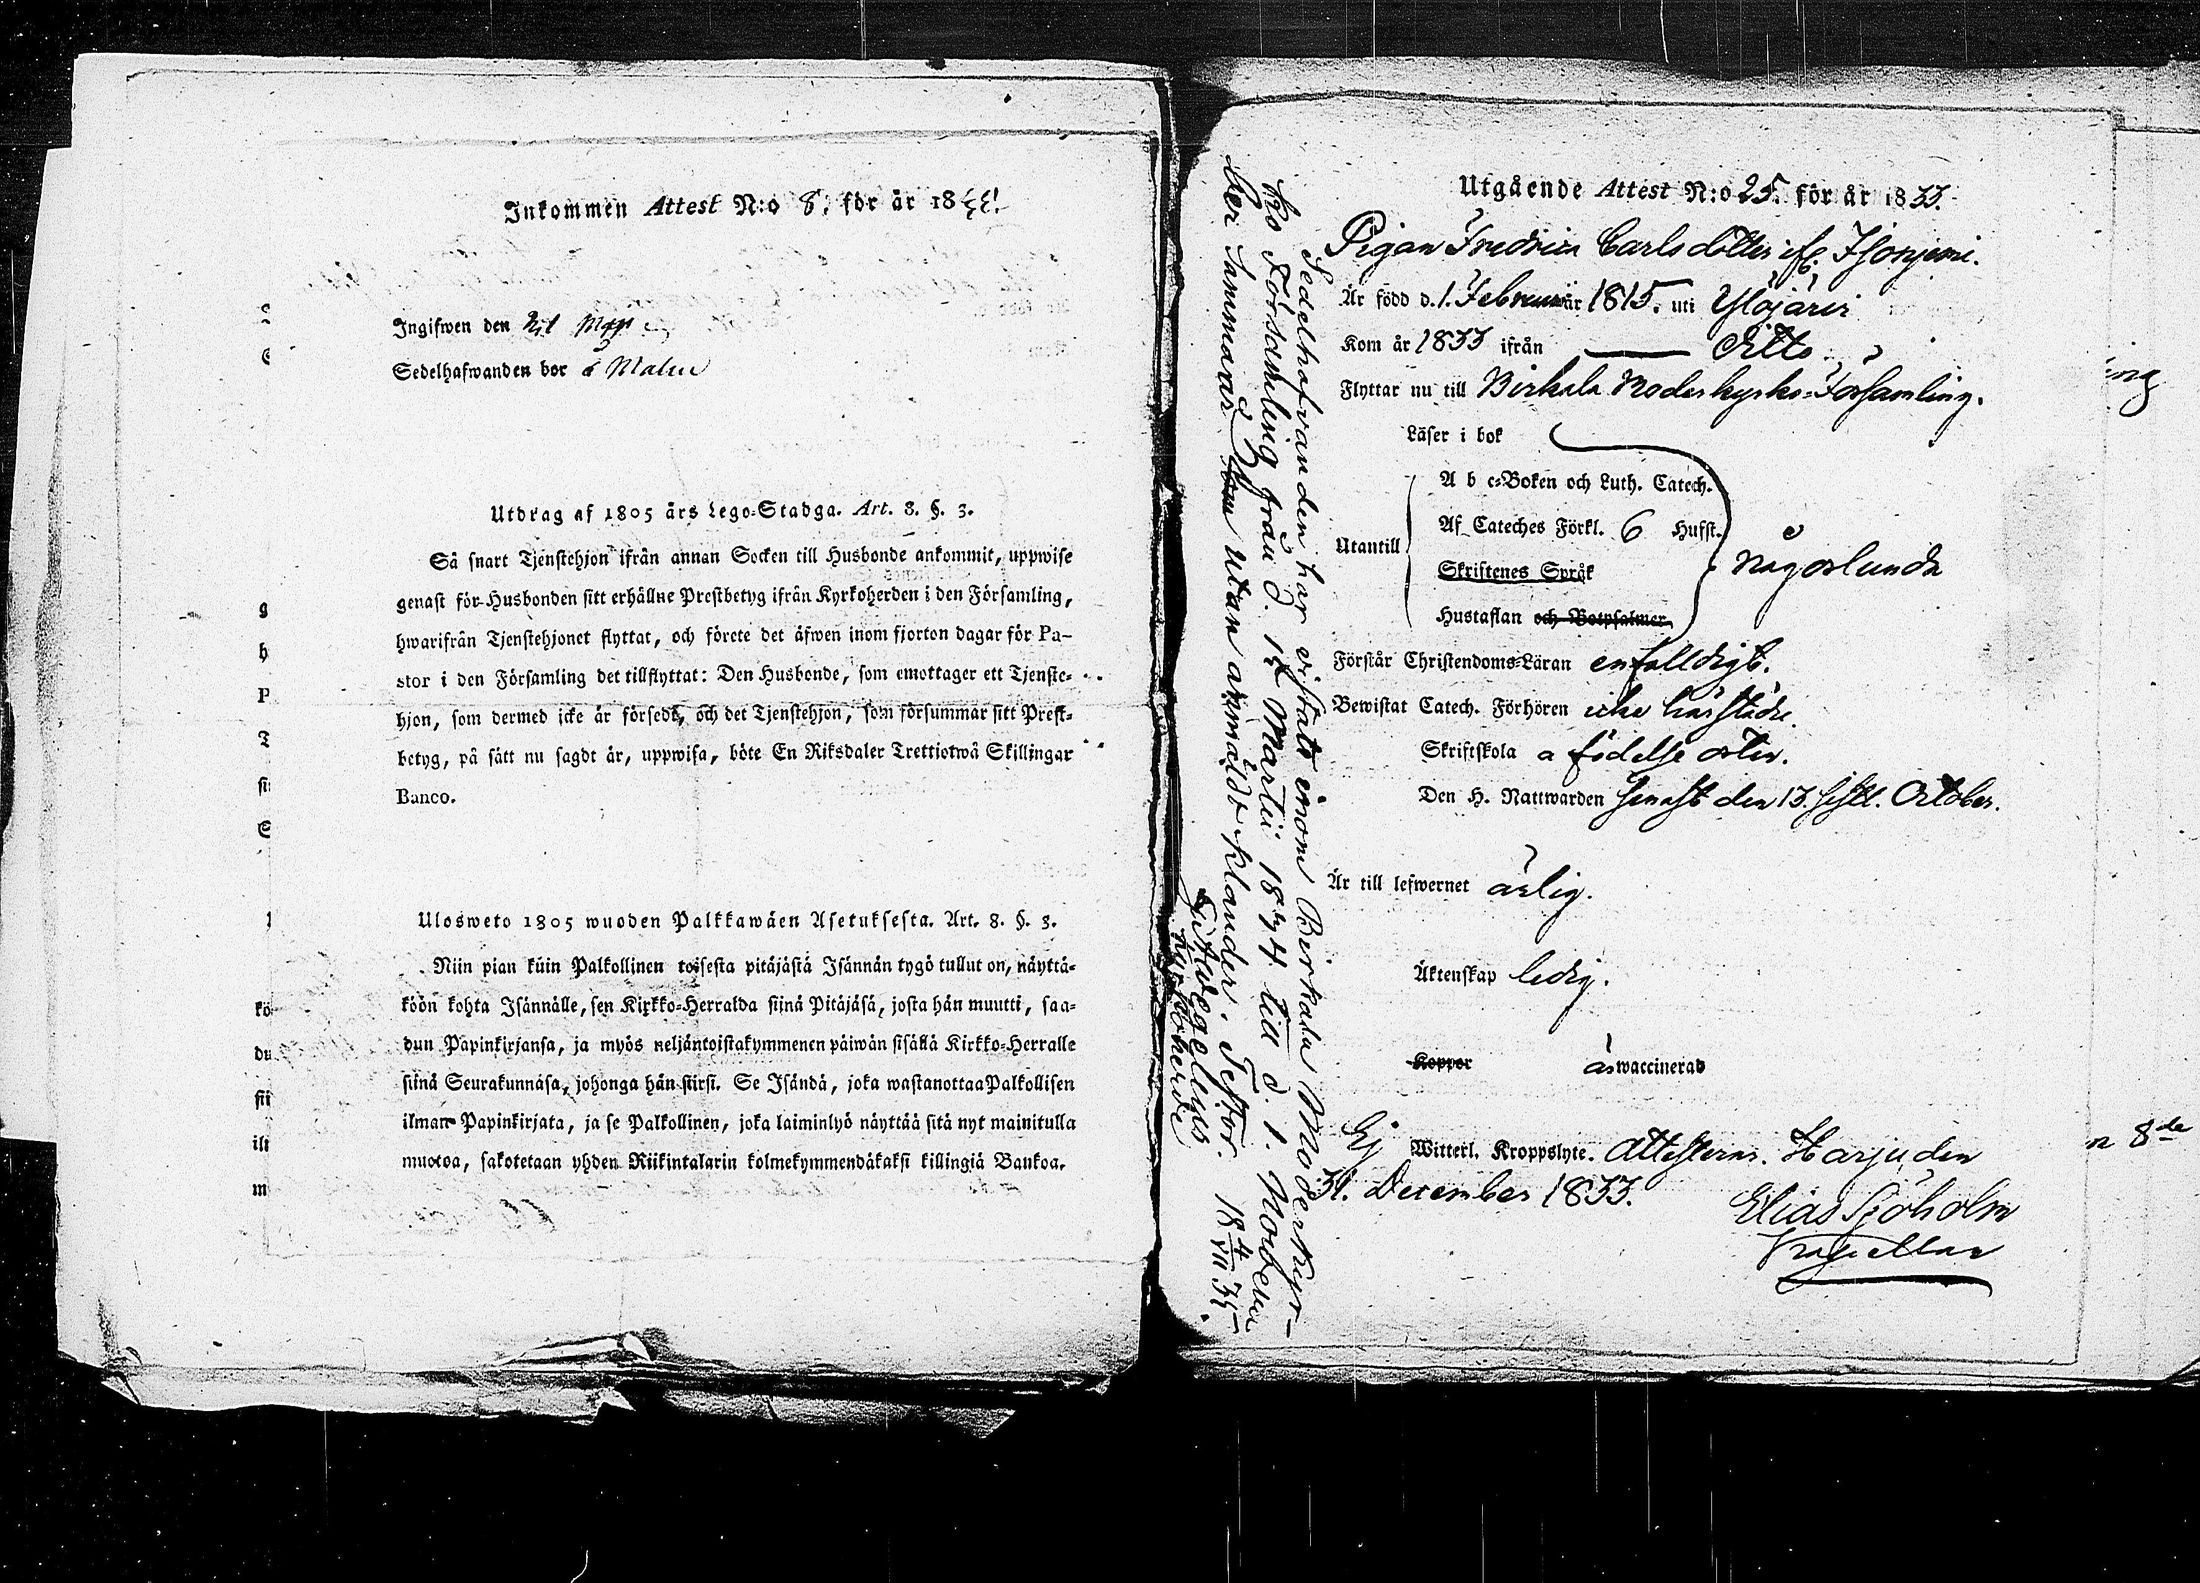 Inkommen Attest N:o 8. för år 18
Ingifwen den
Sedelhafwanden bor å Malm
Utdrag af 1805 års Lego-Stadga. Art. 8. §. 3.
Så snart Tjenstehjon ifrån annan Socken till Husbonde ankommit, uppwise
genast för Husbonden sitt erhållne Prestbetyg ifrån Kyrkoherden i den Församling,
hwarifrån Tjenstehjonet flyttat, och förete det äfwen inom fjorton dagar för Pa-
stor i den Församling det tillflyttat: Den Husbonde, som emottager ett Tjenste-
hjon, som dermed icke är försedt, och det Tjenstehjon, som försummar sitt Prest-
betyg, på sätt nu sagdt är, uppwisa, böte En Riksdaler Trettiotwå Skillingar
Banco.
Ulosweto 1805 wuoden Palkkawäen Asetuksesta. Art. 8. §. 3.
Niin pian kuin Palkollinen toisesta pitäjästä Isännän tygö tullut on, näyttä-
köön kohta Isännälle, sen Kirkko-Herralda siinä Pitäjäsä, josta hän muutti, saa-
dun Papinkirjansa, ja myös neljäntoistakymmenen päiwän sisällä Kirkko-Herralle
siinä Seurakunnasa, johonga hän siirsi. Se Isändä, joka wastanottaa Palkollisen
ilman Papinkirjata, ja se Palkollinen, joka laiminlyö näyttää sitä nyt mainitulla
muotoa, sakotetaan yhden Riikintalarin kolmekymmendäkaksi killingiä Bankoa.
Utgående Attest N:o 25. för år 1833.
Pigan Fredrica Carlsdotter ifr. Isoniemi.
Är född d. 1. Februari år 1815. uti Ylöjärvi
Kom år 1833 ifrån Ditto
Flyttar nu till Birkala Moderkyrko-Församling.
Läser i bok
A b c-Boken och Luth. Catech.
Af Cateches Förkl. 6 Hufst.
Utantill
Skriftenes Språk
Någorlunda
Hustaflan och Botpsalmer
Förstår Christendoms-Läran enfalldigt.
Bewistat Catech. Förhören icke härstädes.
Skriftskola å födelse orten.
Den H. Nattwarden senast den 13. sistl. October.
Är till lefwernet ärlig.
Äktenskap ledig.
Koppor är waccinerad
Ej Witterl. Kroppslyte. Attesterar. Harju den
31. December 1833.
Elias Sjöholm
Kapellan
Sedelhafvanden har vistats inom Birkala Moderkyr-
ko Församling från d. 14 Martii 1834 till d. 1. Novem
ber sammans år utan anmäldt klander. Testor.
Gust. Wegelius
Kyrkoherde
ing
n 8de